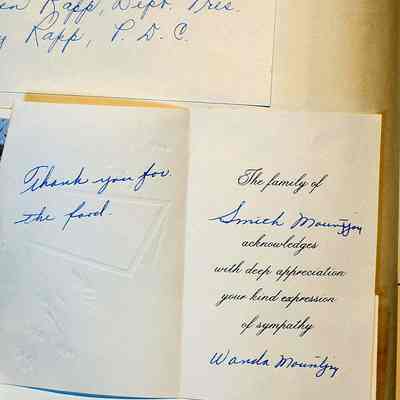 Rapp, Dept. Pres.
Rapp, P. D. C.
Thank you for
the food.
The family of
Smith Mountjoy
acknowledges
with deep appreciation
your kind expression
of sympathy
Wanda Mountjoy